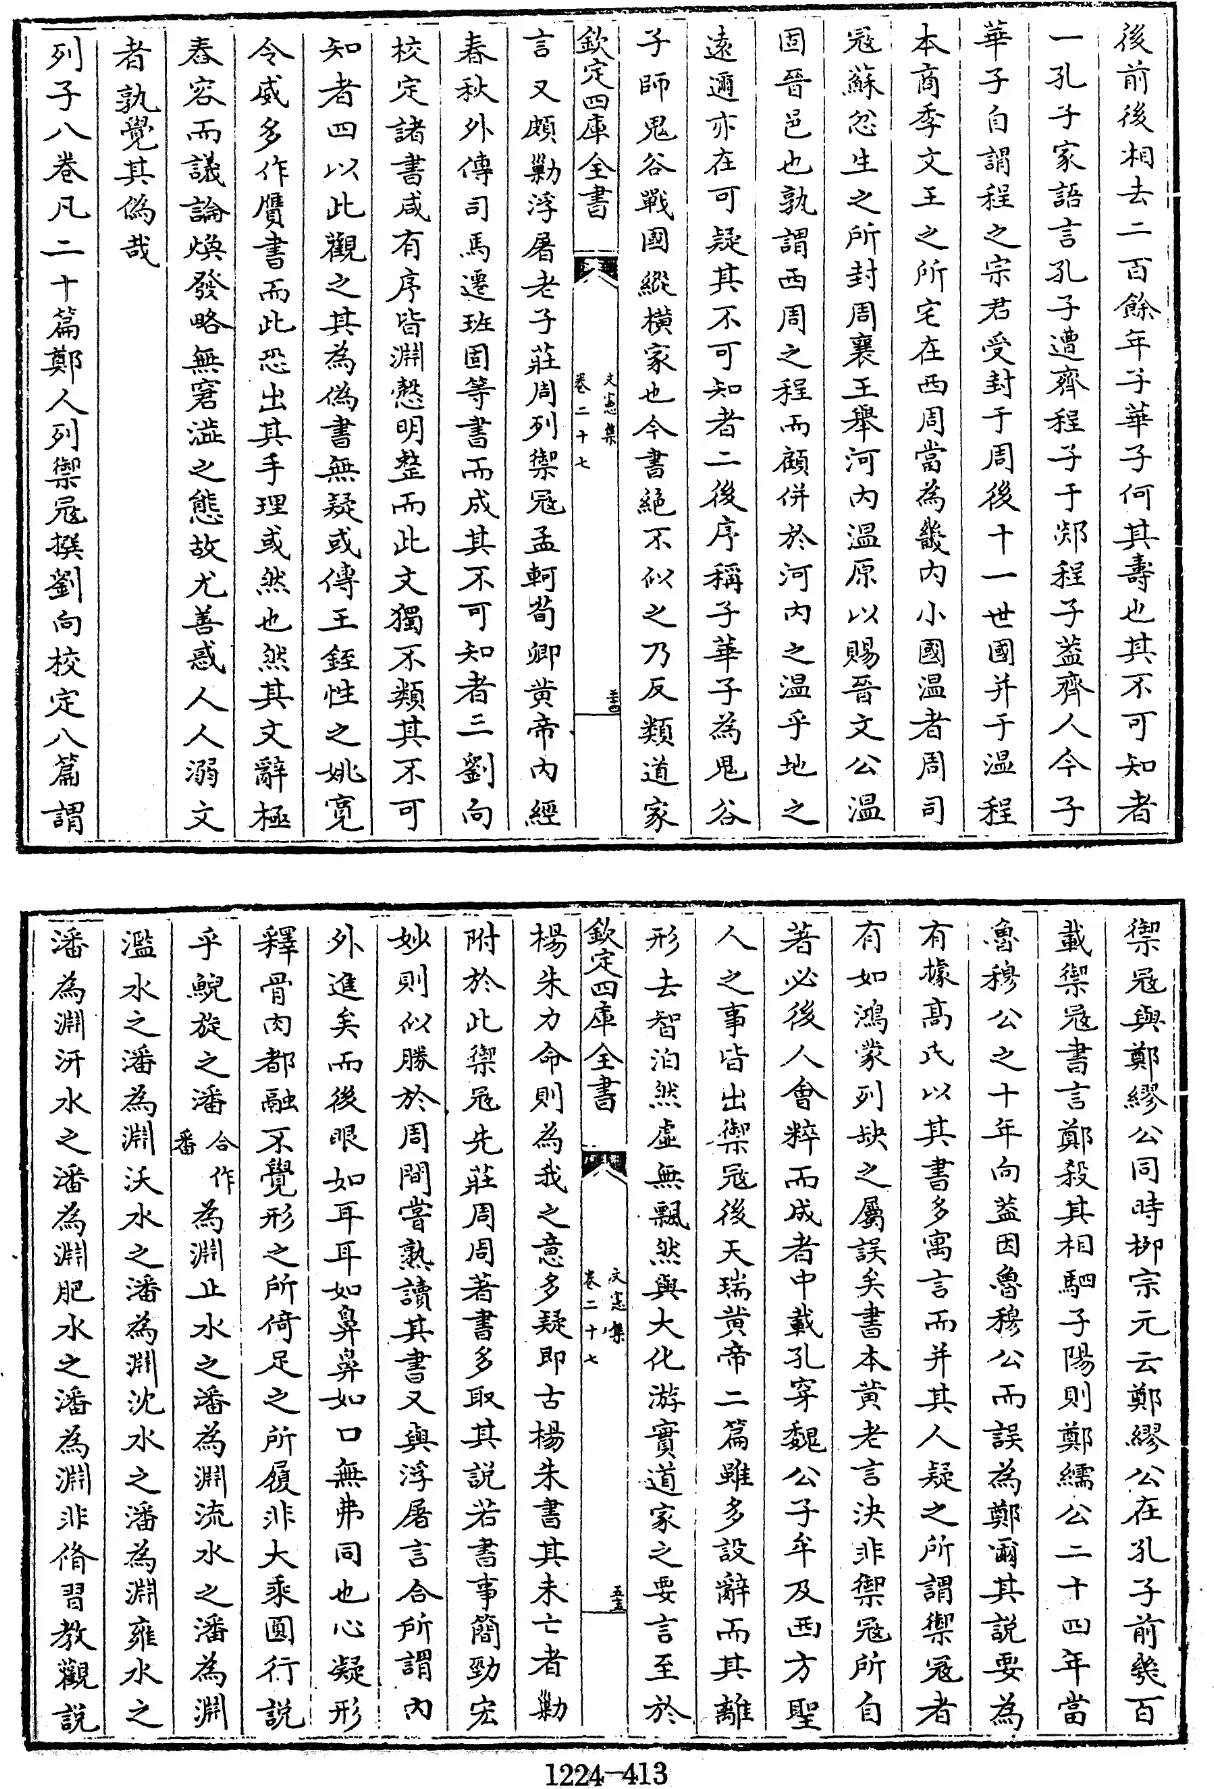 後前後相去二百餘年子華子何其壽也其不可知者
一孔子家語言孔子遭齊程子于郯程子蓋齊人今子
華子自謂程之宗君受封于周後十一世國并于溫程
本商季文王之所宅在西周當為畿內小國溫者周司
冦蘇忿生之所封周襄王舉河內溫原以賜晉文公溫
固晉邑也孰謂西周之程而顧併於河內之溫乎地之
遠邇亦在可疑其不可知者二後序稱子華子為鬼谷
子師鬼谷戰國縱橫家也今書絕不似之乃反類道家
欽定四庫全書
文憲集
卷二十七
五十四
言又頗勦浮屠老子莊周列禦冦孟軻荀卿黃帝內經
春秋外傳司馬遷班固等書而成其不可知者三劉向
校定諸書咸有序皆淵慤明整而此文獨不類其不可
知者四以此觀之其為偽書無疑或傳王銍性之姚寬
令威多作贋書而此恐出其手理或然也然其文辭極
舂容而議論煥發略無窘澁之態故尤善惑人人溺文
者孰覺其偽哉
列子八卷凡二十篇鄭人列禦冦撰劉向校定八篇謂
禦冦與鄭繆公同時栁宗元云鄭繆公在孔子前幾百
載禦冦書言鄭殺其相駟子陽則鄭繻公二十四年當
魯穆公之十年向蓋因魯穆公而誤為鄭爾其說要為
有據髙氏以其書多寓言而并其人疑之所謂禦冦者
有如鴻蒙列缺之屬誤矣書本黃老言決非禦冦所自
著必後人會粹而成者中載孔穿魏公子牟及西方聖
人之事皆出禦冦後天瑞黃帝二篇雖多設辭而其離
形去智泊然虛無飄然與大化游實道家之要言至於
欽定四庫全書
文憲集
卷二十七
五十五
楊朱力命則為我之意多疑即古楊朱書其未亡者勦
附於此禦冦先莊周周著書多取其說若書事簡勁宏
妙則似勝於周間嘗熟讀其書又與浮屠言合所謂內
外進矣而後眼如耳耳如鼻鼻如口無弗同也心凝形
釋骨肉都融不覺形之所倚足之所履非大乘圓行說
乎鯢旋之潘合作番為淵止水之潘為淵流水之潘為淵
濫水之潘為淵沃水之潘為淵沈水之潘為淵雍水之
潘為淵汧水之潘為淵肥水之潘為淵非脩習教觀説
1224-413